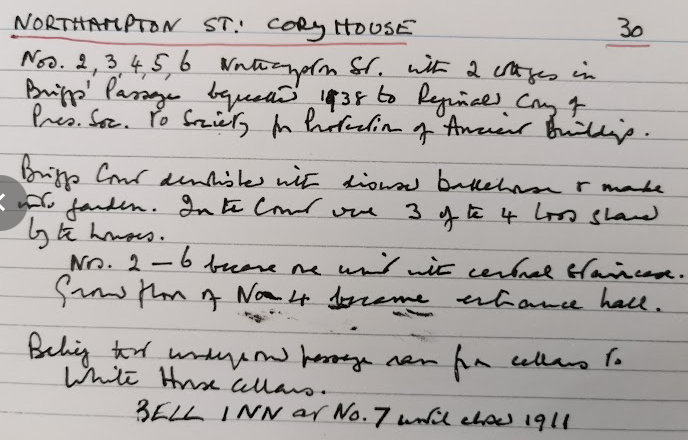 NORTHAMPTON ST: CORY HOUSE 30
Nos. 2, 3 4, 5, 6 Northampton St. with 2 cottages in
Briggs' Passage bequeathed 1938 to Reginald Cory of
Pres. Soc. to Society for Protection of Ancient Buildings.
Briggs Court demolished with disused bakehouse & made
into garden. In the Court were 3 of the 4 loos shared
by the houses.
Nos. 2 – 6 became one unit with central staircase.
Ground floor of No 4 became entrance hall.
Belief that underground passage ran from cellars to
White Horse cellars.
BELL INN at No. 7 until closed 1911